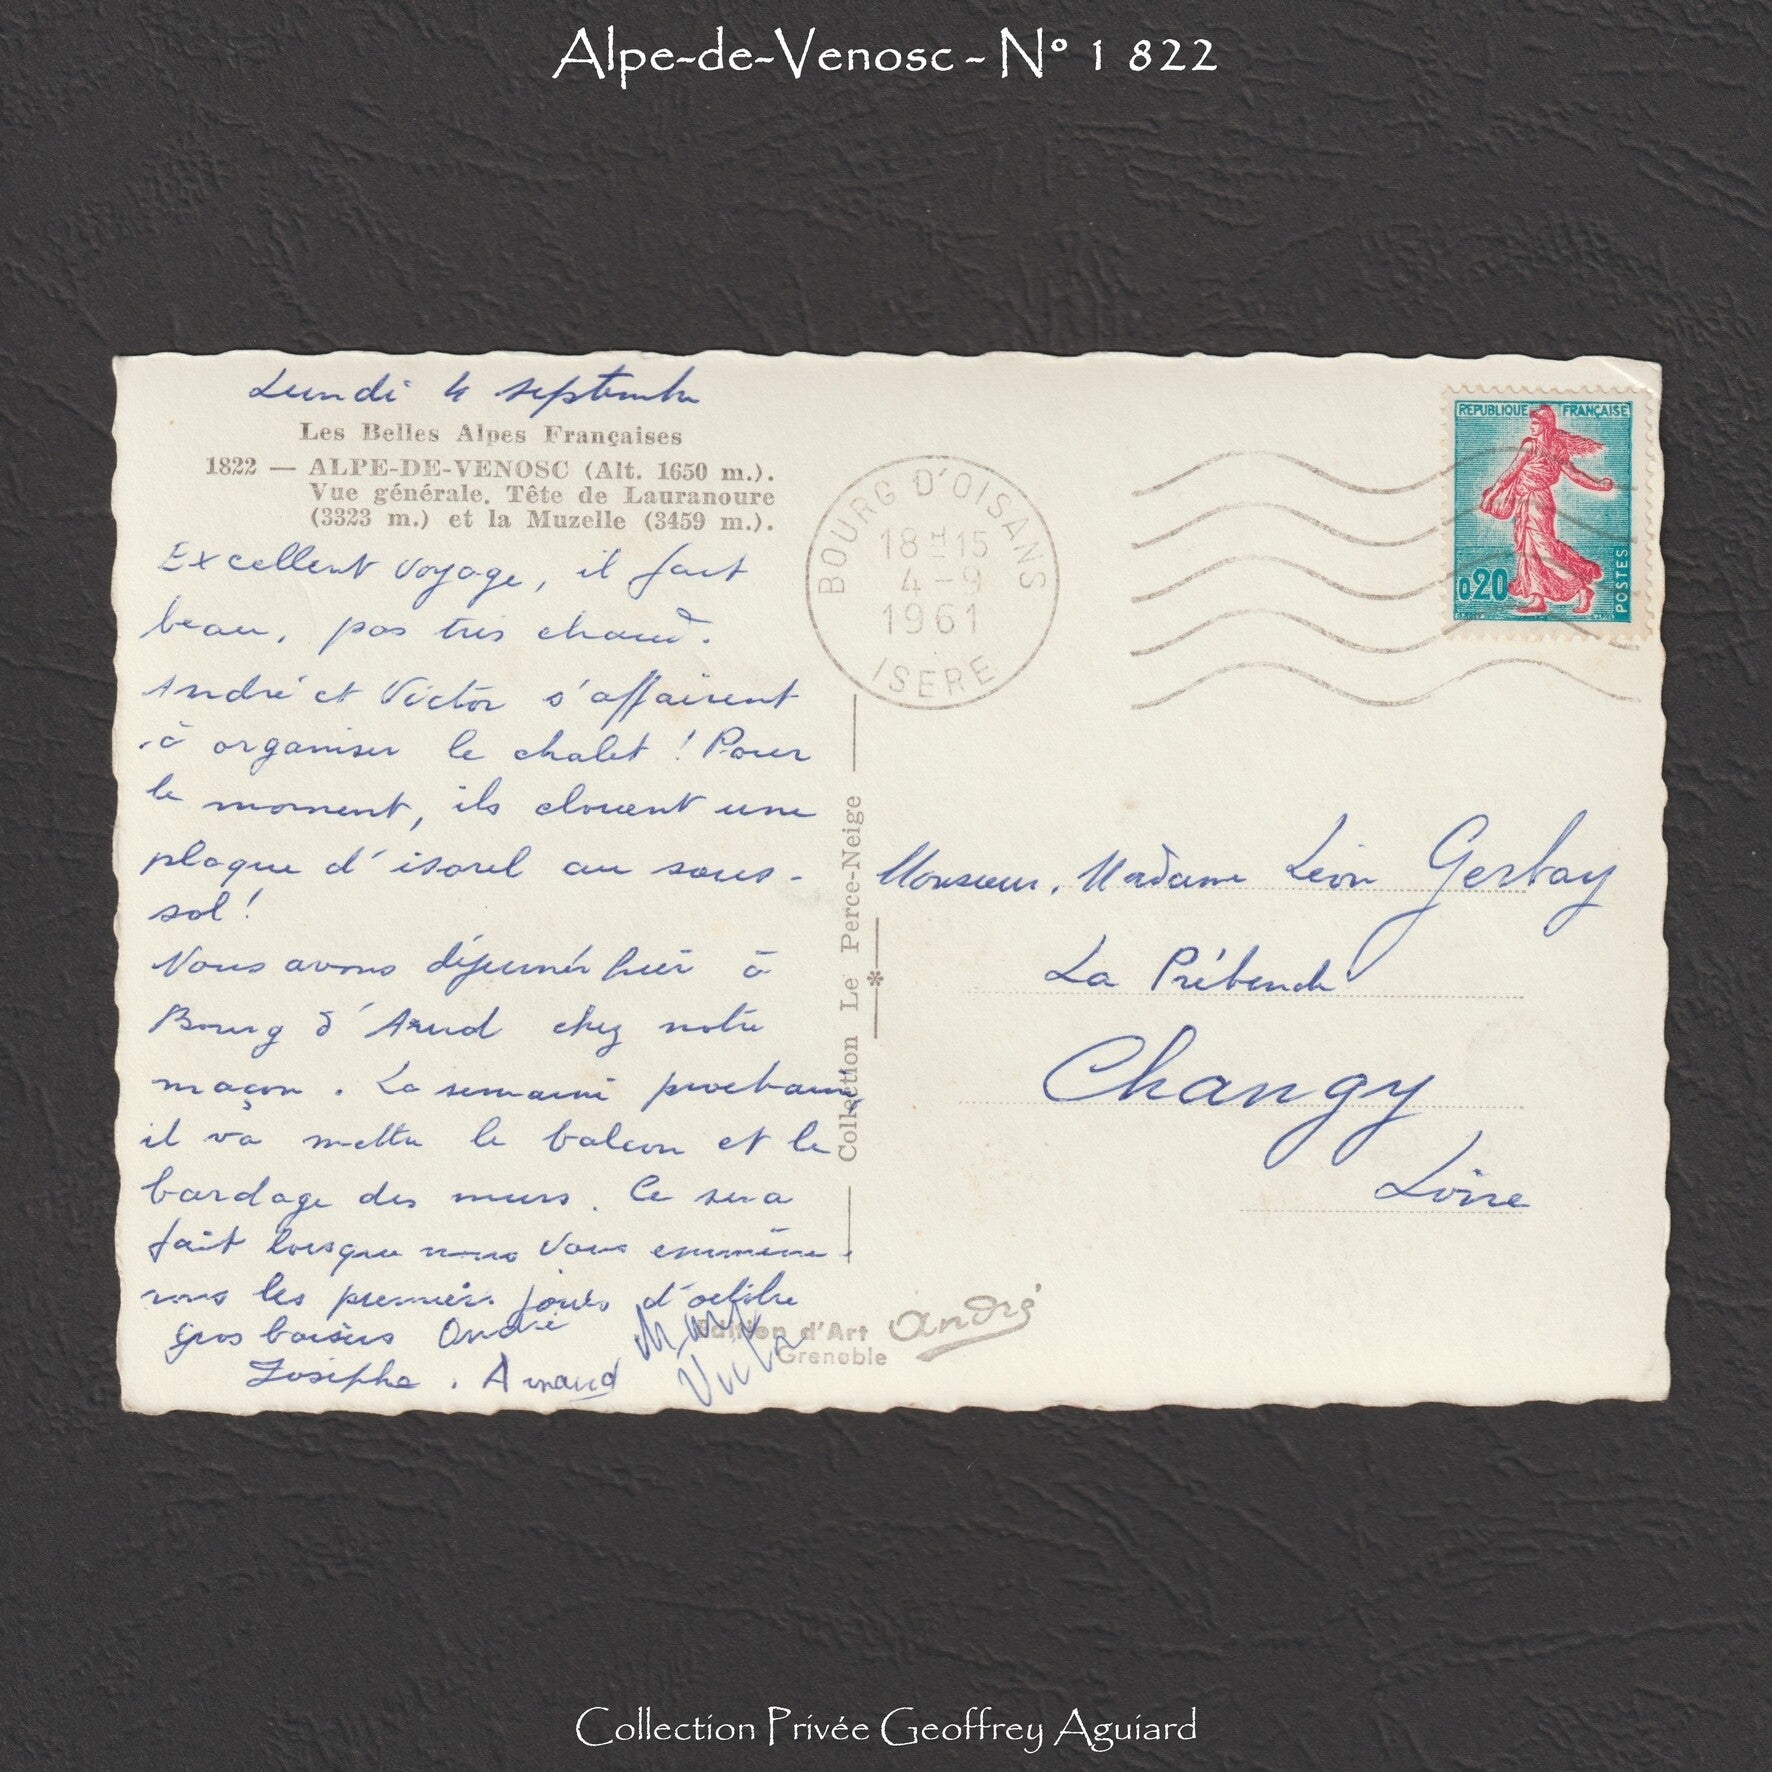 Alpe-de-Venosc - N° 1 822
Lundi 4 septembre
Les Belles Alpes Françaises
1822 — ALPE-DE-VENOSC (Alt. 1650 m.).
Vue générale. Tête de Lauranoure
(3323 m.) et la Muzelle (3459 m.).
Excellent voyage, il fait
beau, pas très chaud.
André et Victor s'affairent
à organiser le chalet ! Pour
le moment, ils clouent une
plaque d'isorel au sous-
sol !
Nous avons déjeuner hier à
Bourg d'Arud chez notre
maçon. La semaine prochaine
il va mettre le balcon et le
bardage des murs. Ce sera
fait lorsque nous vous emmène-
rons les premiers jours d'octobre
Gros baisers André
Josèphe. Arnaud
Victor
BOURG D'OISANS
18H15
4-9
1961
ISERE
REPUBLIQUE FRANÇAISE
0,20
POSTES
Collection Le Perce-Neige
*
Monsieur, Madame Léon Gerbay
La Prébende
Changy
Loire
Edition d'Art André
Grenoble
Collection Privée Geoffrey Aguiard